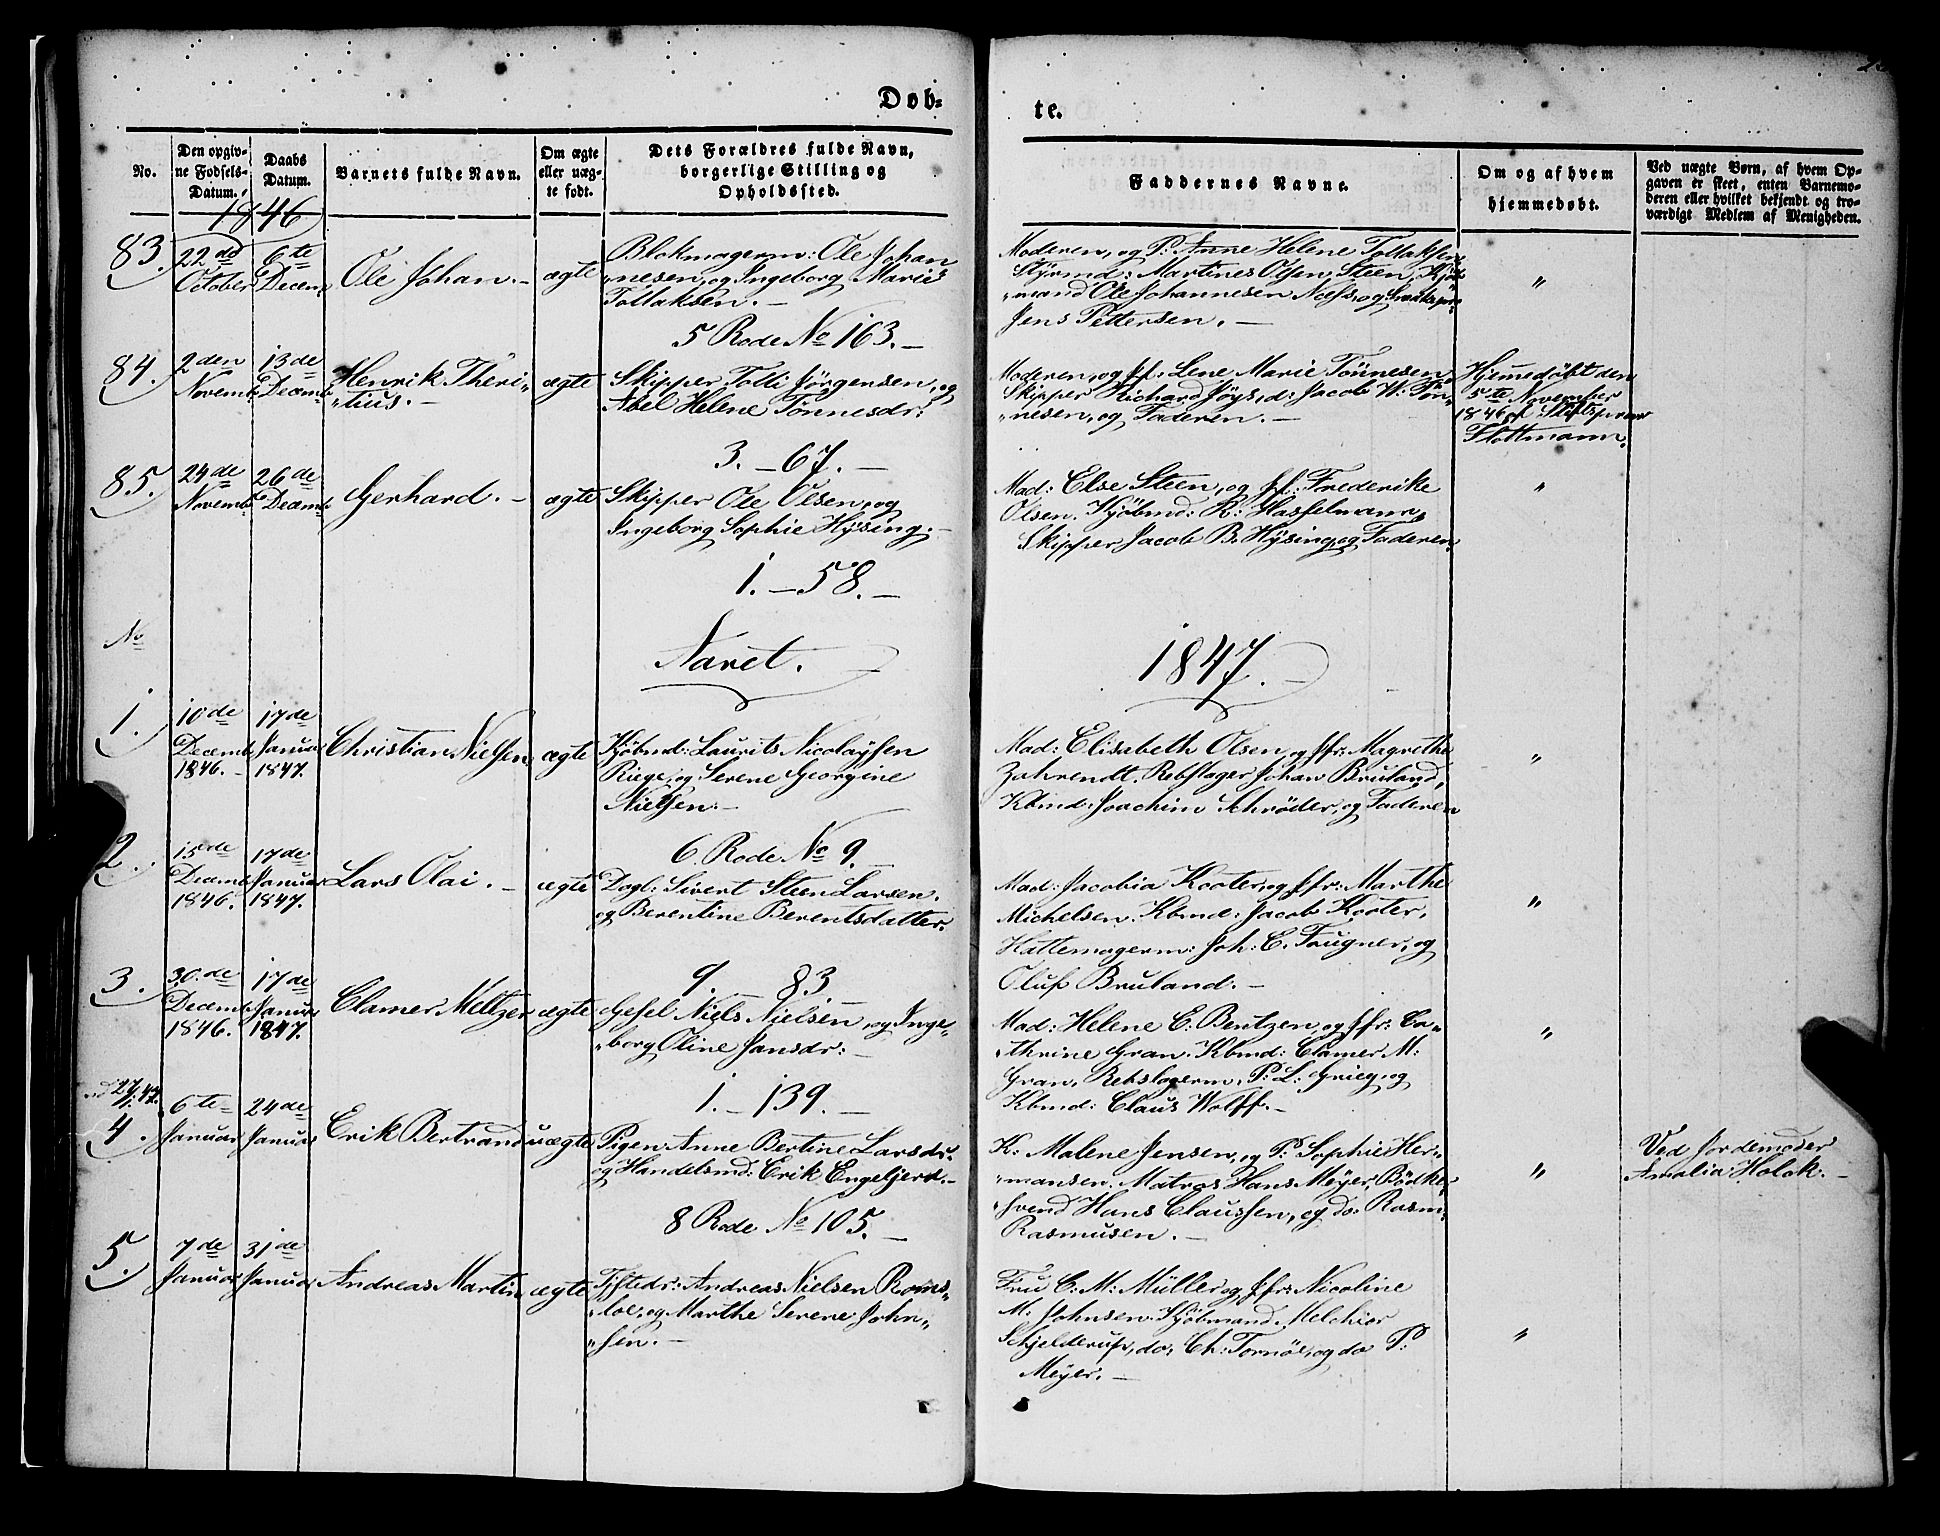 Døb-
te.
No.
Den opgiv-
ne Fødsels-
Datum.
Daabs
Datum.
Barnets fulde Navn.
Om ægte
eller uæg-
te født.
Dets Forældres fulde Navn,
borgerlige Stilling og
Opholdssted.
Faddernes Navne.
Om og af hvem
hjemmedøbt.
Ved uægte Børn, af hvem Op-
gaven er skeet, enten Barnemo-
deren eller hvilket bekjendt og tro-
værdigt Medlem af Menigheden.
1846
83.
22. nd
October
6te
Decem.
Ole Johan. -
ægte
Blokmagerm: Ole Johan
"nesen, og Ingeborg Marie
Tollaksen. -
5 Rode No 163. -
Moderen, og P: Anne Helene Tollaksen
Styrmd: Martines Olsen Steen,
"mand Ole Johannesen Næss, og
Jens Pettersen. -
"
84.
2den
Novemb.
13de
Decemb
Henrik Theri-
"tius. -
ægte
Skipper Tolli Jörgensen, og
Abel Helene Tönnesdr:
3. - 67. -
Moderen, og Jf: Lene Marie Tönnesen
Skipper Richard Jöys, d: Jacob W: Tön-
"nesen, og Faderen. -
Hjemedöbt den
5te November
1846 af
Flottmann.
85.
24de
Novemb.
26de
Decemb
Gerhard. -
ægte
Skipper Ole Olsen, og
Ingeborg Sophie Hÿsing. -
1. - 58. -
Mad: Else Steen, og Jf: Frederike
Olsen. Kjöbmd: R: Hasselmann,
Skipper Jacob B. Hÿsing, og Faderen.
"
No
Aaret.
1847. -
1.
10de
Decemb
1846. -
17de
Januar
1847.
Christian Nielsen
ægte
Kjöbmd: Laurits Nicolaÿsen
Riege, og Serene Georgine
Nielsen. -
6. Rode No 9. -
Mad: Elisabeth Olsen, og Jfr: Magrethe
Zahrendt. Rebslager Johan Bruland,
Kbmd: Joachim Schröder, og Faderen
"
2.
15de
Decemb
1846.
17de
Januar
1847.
Lars Olai. -
ægte
Dagl: Sivert Steen Larsen.
og Berentine Berentsdatter.
9. - 83
Mad: Jacobia Kooter, og Jfr: Marthe
Michelsen. Kbmd: Jacob Kooter,
Hattemagerm: Joh: C. Faugner, og
Oluf Bruland. -
"
3.
30.de
Decemb
1846.
17de
Januar
1847.
Clamer Meltzer
ægte
Gesel Niels Nielsen, og Inge-
"borg Oline Jansdr: -
1. - 139. -
Mad: Helene C. Bentzen, og Jfr: Ca-
"thrine Gran. Kbmd: Clamer M:
Gran, Rebslagerm. P: L: Grieg, og
Kbmd: Claus Wolff. -
"
4.
6te
Januar
24de
Januar
Erik Bertrand
uægte
Pigen Anne Bertine Larsdr.
og Handelsmd: Erik Engeljert. -
8 Rode No 105. -
K: Malene Jensen, og P: Sophie Her-
"mansen. Matros Hans Meÿer, Bödker
"svend Hans Claussen, og do: Rasm.
Rasmusen. -
"
Ved Jordemoder
Amalia Holck. -
5.
7de
Januar
31de
Januar
Andreas Martin
ægte
Andreas Nielsen Roms-
"loe, og Marthe Serene John-
"sen. -
Fru C: M: Müller, og Jfr: Nicoline
M: Johnsen. Kjöbmand. Melchior
Schjelderup, do, Ch: Tornöe, og do P:
Meÿer. -
"